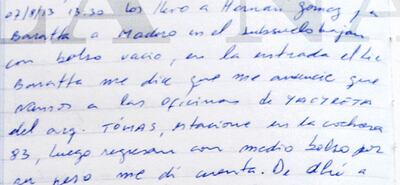 07/8/13 13.30 los llevo a Hernan Gomez y a
Baratta a Madero en el subsuelo bajan
con bolso vacio, en la entrada el Lic
Baratta me dice que me anuncie que
vamos a las oficinas de YACYRETA
del arq. TÓMAS, estacione en la cochera
83, luego regresan con medio bolso por
su peso me di cuenta. De alli a